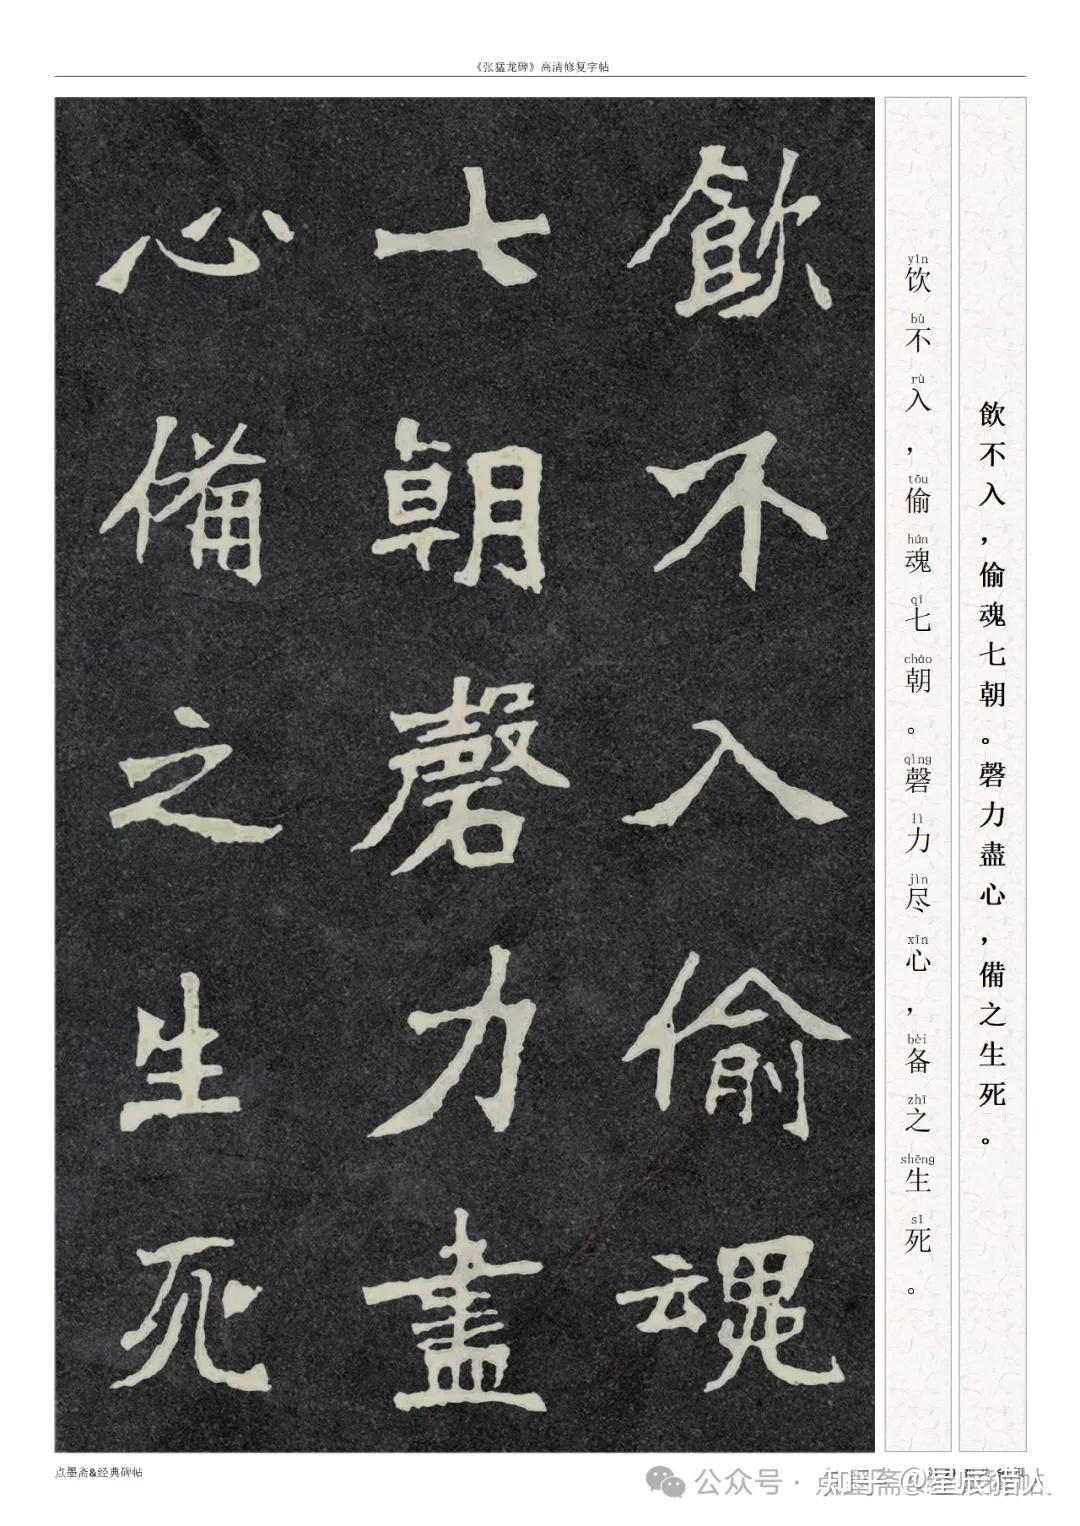 《张猛龙碑》高清修复字帖
飲不入偷魂
七朝磬力盡
心備之生死
飲不入，偷魂七朝。磬力盡心，備之生死。
yǐn bù rù tōu hún qī cháo qìng lì jìn xīn bèi zhī shēng sǐ
饮不入，偷魂七朝。磬力尽心，备之生死。
点墨斋&经典碑帖
公众号·点墨斋
知乎 @星辰猎人